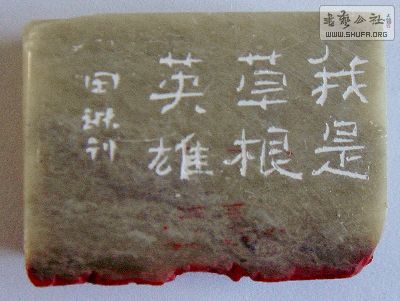 我是
草根
英雄
田
刊
书艺公社
WWW.SHUFA.ORG